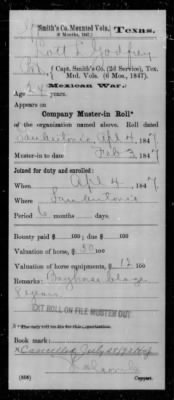 S Smith's Co. Mounted Vols., Texas.
(6 Months, 1847.)
Godfrey
Pvt., Capt. Smith's Co. (2d Service), Tex.
Mtd. Vols. (6 Mos., 1847).
Mexican War.
Age 24 years.
Appears on
Company Muster-in Roll*
of the organization named above. Roll dated
San Antonio, Apl 4, 1847
Muster-in to date Feb 3, 1847
Joined for duty and enrolled:
When Apl 4, 1847
Where San Antonio
Period 6 months days.
Bounty paid $ 100; due $ 100
Valuation of horse, $ 50/100
Valuation of horse equipments, $ 12/100
Remarks: Bay horse
NOT ROLL ON FILE MUSTER OUT
*The only roll on file for this organization.
Book mark:
Cancelled July
(858) Copyist.